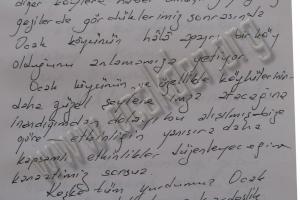 diğer köylere haber
gezilerde gördüklerimiz sonrasında
Ocak köyünün hâlâ apayrı bir köy
olduğunu anlamamıza yetiyor.
Ocak köyünün ve özellikle köylülerinin
daha güzel şeylere imza atacağına
inandığımdan dolayı bu alışılmış bize
göre etkinliğin yanısıra daha
kapsamlı etkinlikler düzenleyeceğine
kanaatimiz sonsuz.
Keşke tüm yurdumuz Ocak